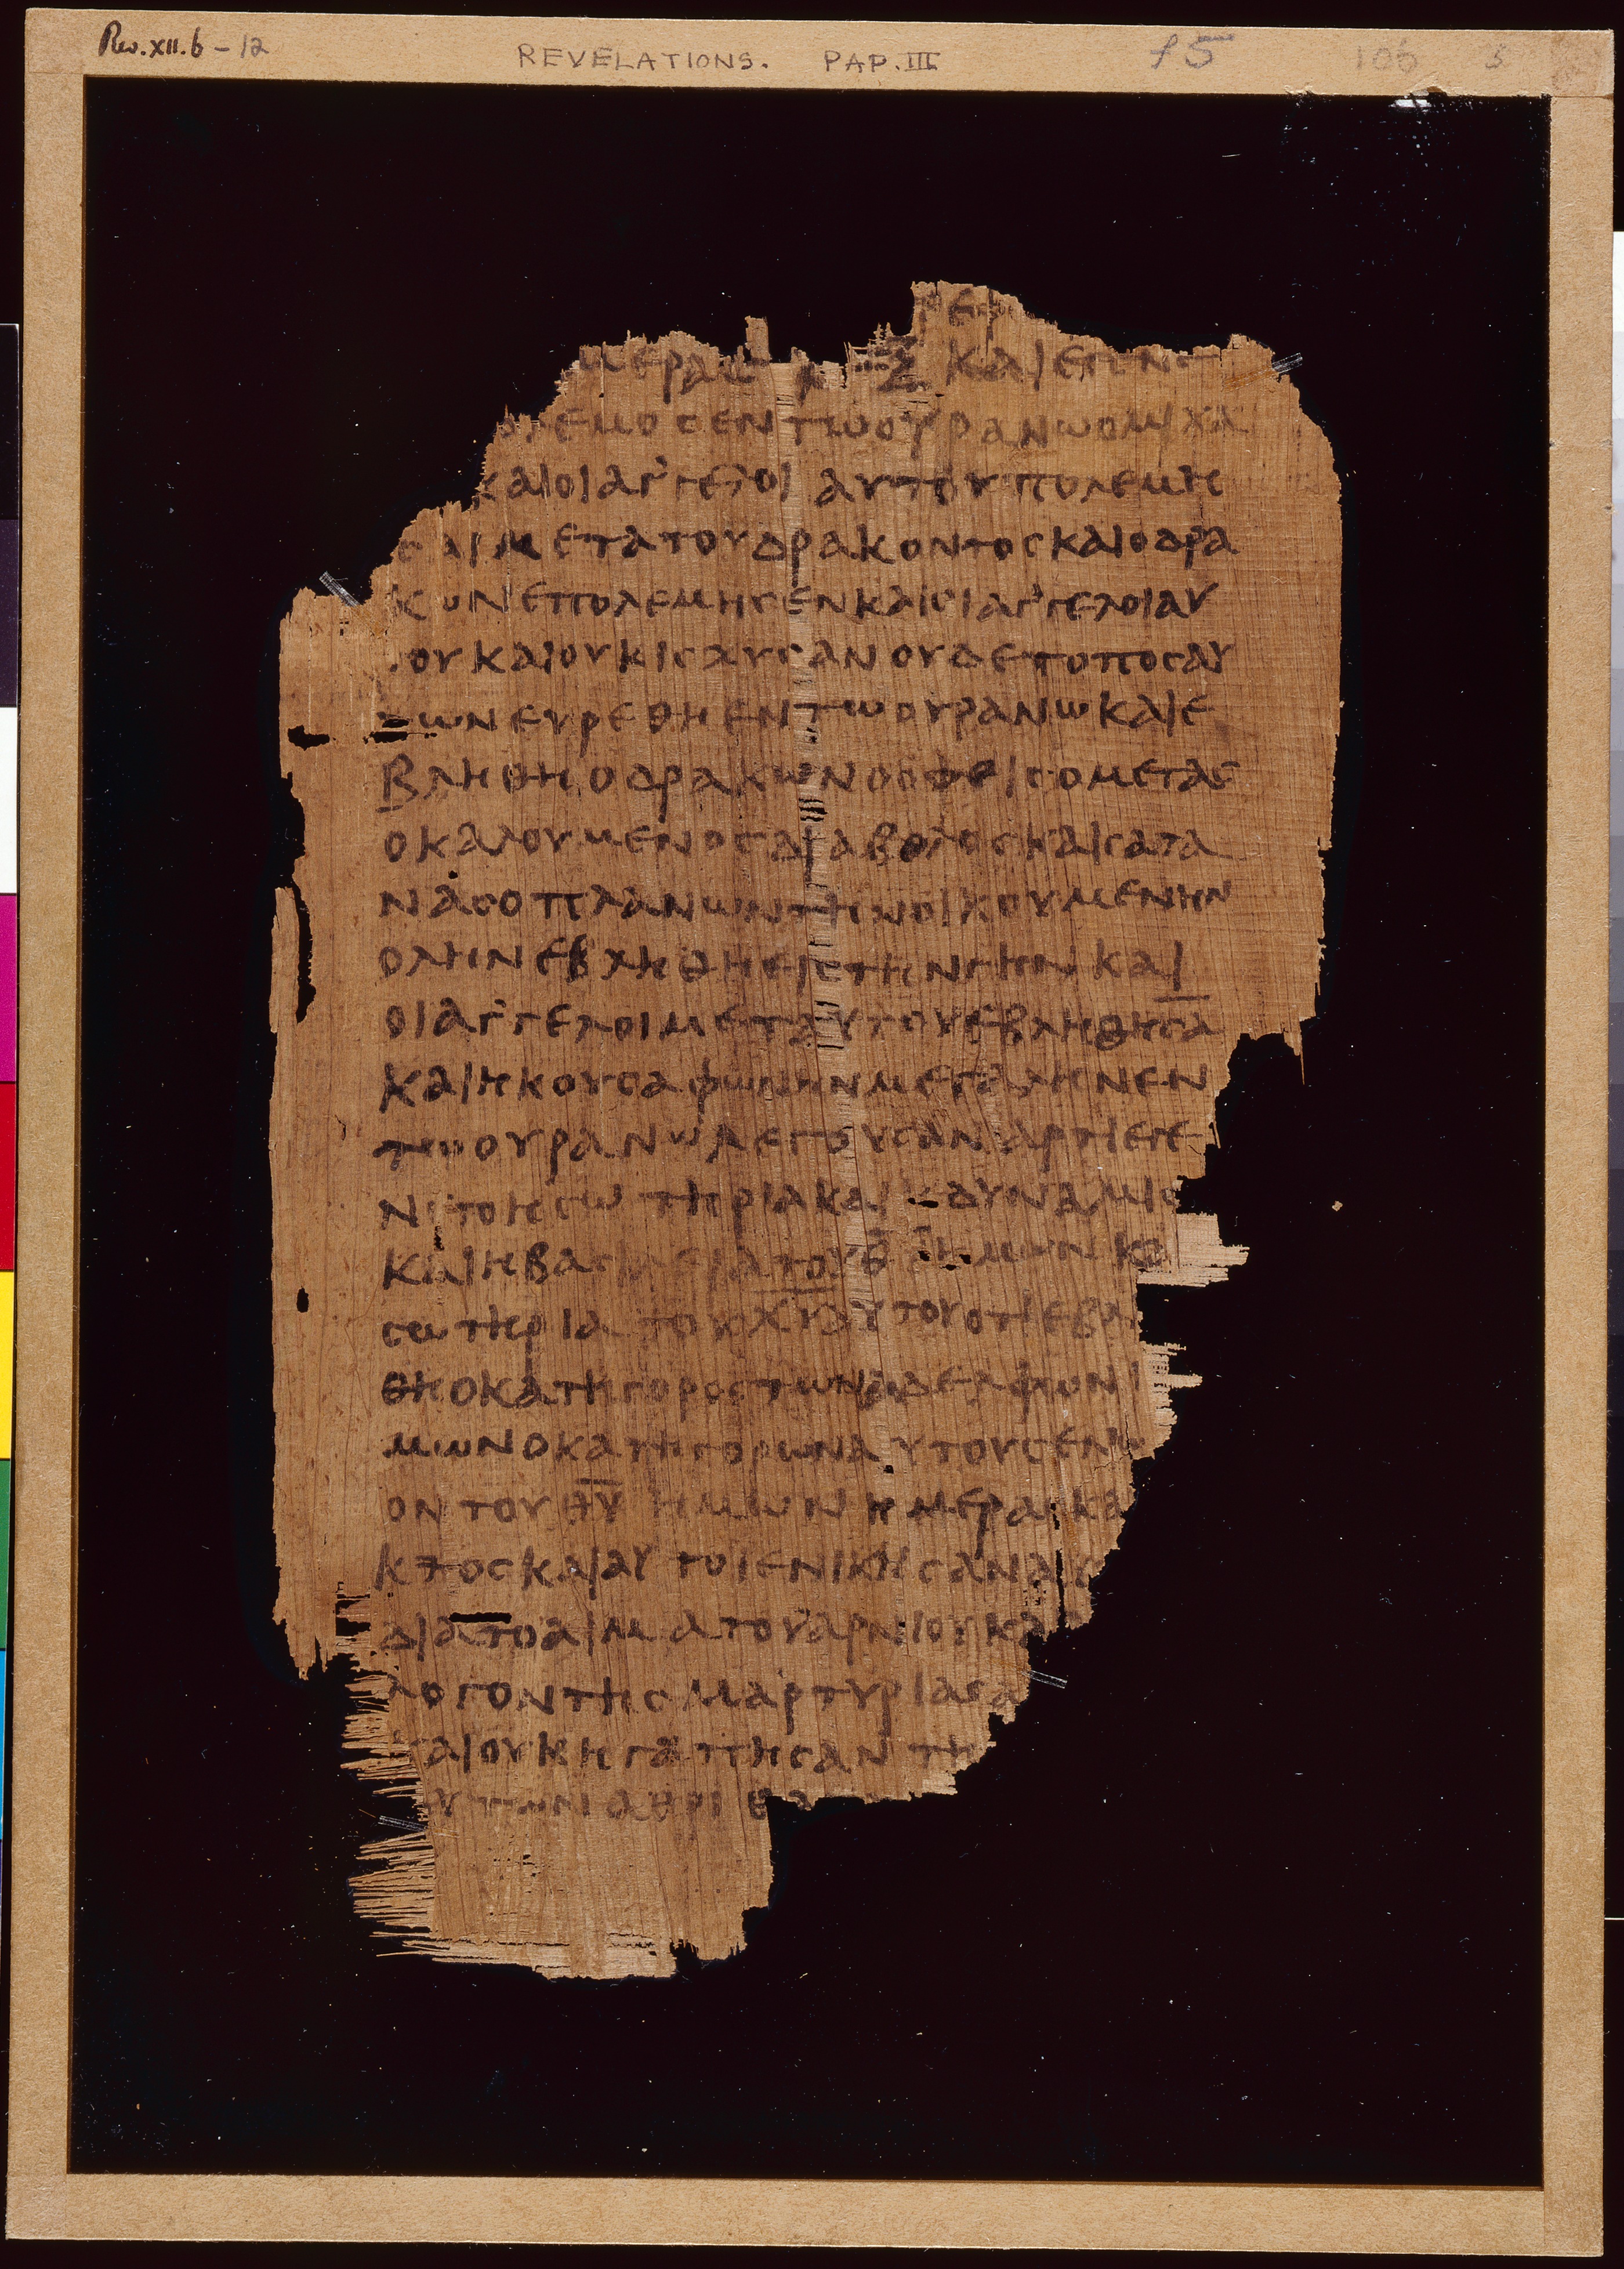 Rev. XII. 6 - 12
REVELATIONS. PAP. III
15
106
ΡΕΦ
ΜΕΡΑΣ ΚΑΙΕΓΕΝΕ
ΟΛΕΜΟΣΕΝΤΩΟΥΡΑΝΩΟΜΙΧΑ
ΚΑΙΟΙΑΓ᾽ΓΕΛΟΙ ΑΥΤΟΥΠΟΛΕΜΗ
ΣΑΙΜΕΤΑΤΟΥΔΡΑΚΟΝΤΟΣΚΑΙΟΔΡΑ
ΚΩΝΕΠΟΛΕΜΗΣΕΝΚΑΙΟΙΑΓ᾽ΓΕΛΟΙΑΥ
ΤΟΥΚΑΙΟΥΚΙΣΧΥΣΑΝΟΥΔΕΤΟΠΟΣΑΥ
ΤΩΝΕΥΡΕΘΗΕΝΤΩΟΥΡΑΝΩΚΑΙΕ
ΒΛΗΘΗΟΔΡΑΚΩΝΟΟΦΕΙΣΟΜΕΓΑΣ
ΟΚΑΛΟΥΜΕΝΟΣΔΙΑΒΟΛΟΣΚΑΙΣΑΤΑ
ΝΑΣΟΠΛΑΝΩΝΤΗΝΟΙΚΟΥΜΕΝΗΝ
ΟΛΗΝΕΒΛΗΘΗΕΙΣΤΗΝΓΗΝΚΑΙ
ΟΙΑΓ᾽ΓΕΛΟΙΜΕΤΑΥΤΟΥΕΒΛΗΘΗΣΑ̅
ΚΑΙΗΚΟΥΣΑΦΩΝΗΝΜΕΓΑΛΗΝΕΝ
ΤΩΟΥΡΑΝΩΛΕΓΟΥΣΑΝΑΡΤΙΕΓΕ
ΝΕΤΟΗΣΩΤΗΡΙΑΚΑΙ ΔΥΝΑΜΙΣ
ΚΑΙΗΒΑΣΙΛΕΙΑΤΟΥΘ̅ ΗΜΩΝΚ
ΣΩΤΗΡΙΑΤΟΥΧ̅Υ̅ΑΥΤΟΥΟΤΙΕΒΛ
ΘΗΟΚΑΤΗΓΟΡΟΣΤΩΝΑΔΕΛΦΩΝ
ΜΩΝΟΚΑΤΗΓΟΡΩΝΑΥΤΟΥΣΕΝΩ
ΟΝΤΟΥΘ̅Υ̅ΗΜΩΝΗΜΕΡΑΣΚΑ
ΚΤΟΣΚΑΙΑΥΤΟΙΕΝΙΚΗΣΑΝΑΥ
ΔΙΑΤΟΑΙΜΑΤΟΥΑΡΝΙΟΥΚΑ
ΛΟΓΟΝΤΗΣΜΑΡΤΥΡΙΑΣΑ
ΚΑΙΟΥΚΗΓΑΠΗΣΑΝΤΗ
ΥΤΩΝΑΧΡΙΘΑ